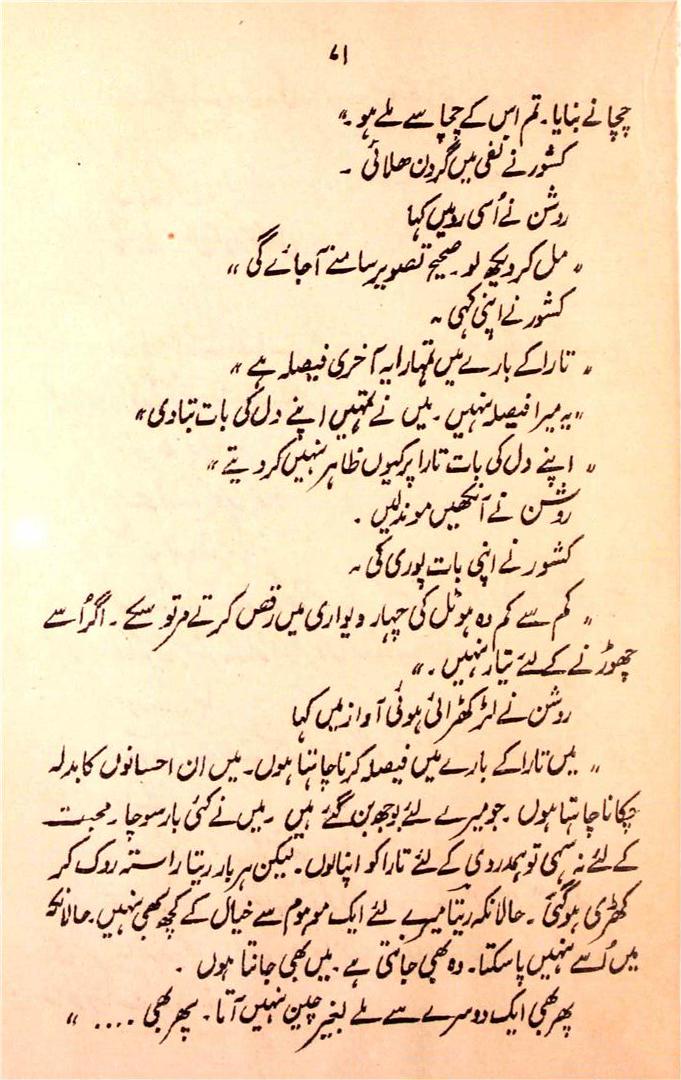 ۷۱
چچا نے بنایا۔ تم اس کے چچا سے ملے ہو۔"
کشور نے نفی میں گردن ھلائی ۔
روشن نے اُسی رو میں کہا
" مل کر دیکھ لو۔ صحیح تصویر سامنے آجائے گی "
کشور نے اپنی کہی ۔
" تارا کے بارے میں تمہارا یہ آخری فیصلہ ہے "
" یہ میرا فیصلہ نہیں ۔ میں نے تمہیں اپنے دل کی بات بتا دی "
" اپنے دل کی بات تارا پر کیوں ظاہر نہیں کر دیتے "
روشن نے آنکھیں موند لیں ۔
کشور نے اپنی بات پوری کی ۔
" کم سے کم وہ ہوٹل کی چہار دیواری میں رقص کرتے مر تو سکے ۔ اگر اُسے
چھوڑنے کے لئے تیار نہیں ۔ "
روشن نے لڑکھڑائی ہوئی آواز میں کہا
" میں تارا کے بارے میں فیصلہ کرنا چاہتا ہوں۔ میں ان احسانوں کا بدلہ
چکانا چاہتا ہوں ۔ جو میرے لئے بوجھ بن گئے ہیں ۔ میں نے کئی بار سوچا ۔ محبت
کے لئے نہ سہی تو ہمدردی کے لئے تارا کو اپنالوں ۔ لیکن ہر بار ریتا راستہ روک کر
کھڑی ہو گئی ۔ حالانکہ ریتا میرے لئے ایک موہوم سے خیال کے کچھ بھی نہیں۔ حالانکہ
میں اُسے نہیں پا سکتا ۔ وہ بھی جانتی ہے ۔ میں بھی جانتا ہوں ۔
پھر بھی ایک دوسرے سے ملے بغیر چین نہیں آتا ۔ پھر بھی .... "